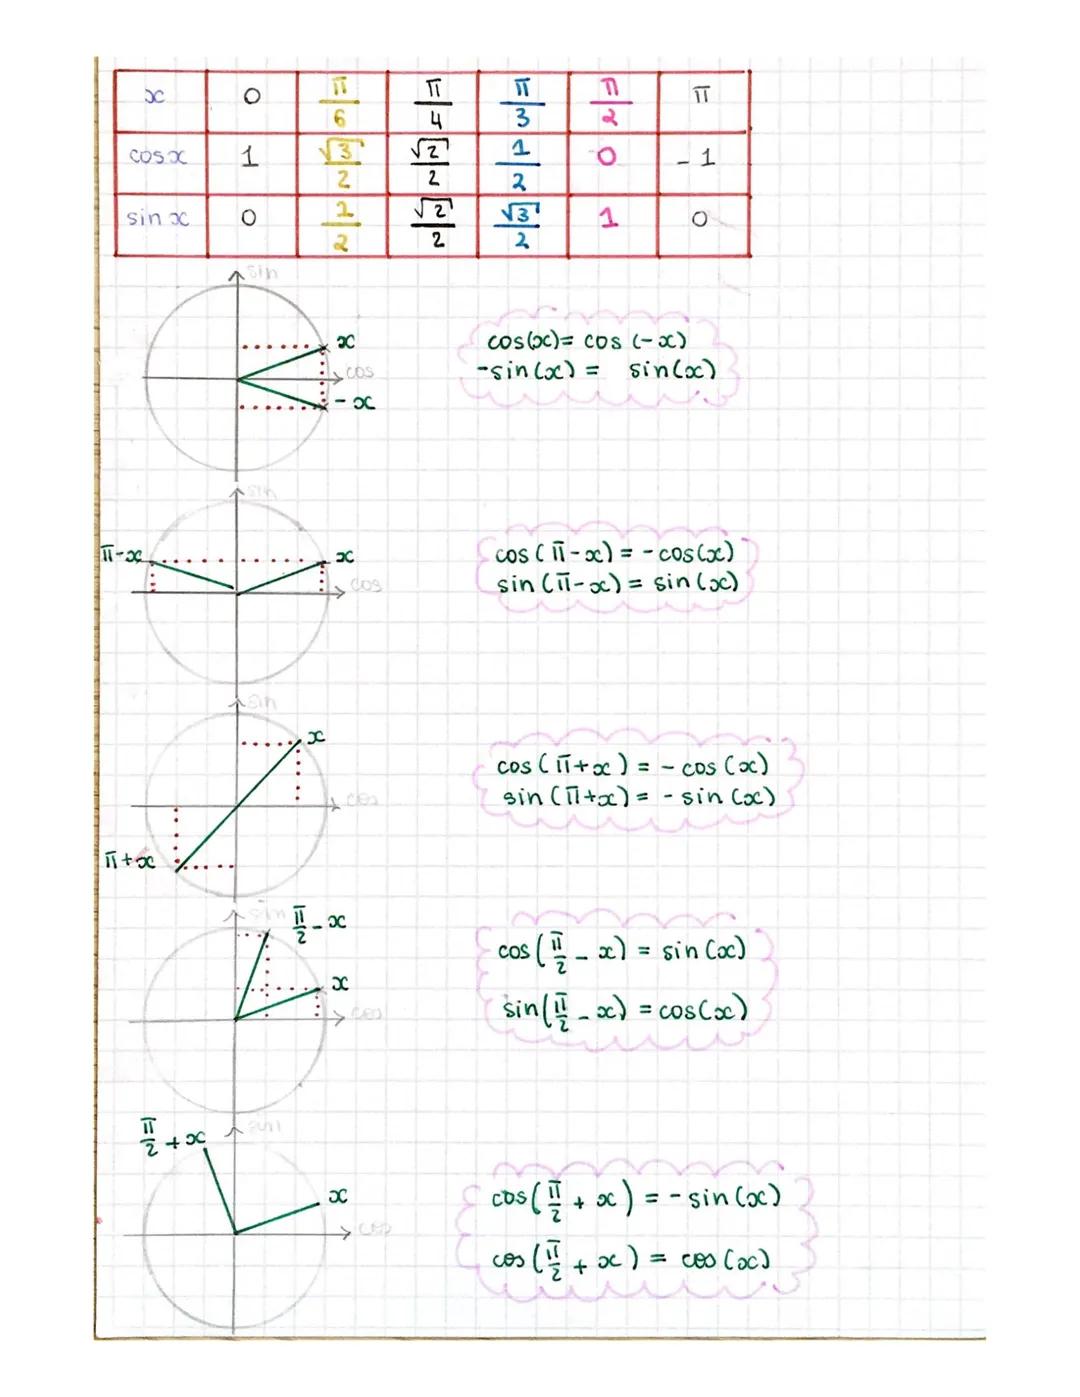 x 0 π/6 π/4 π/3 π/2 π
cos x 1 √3/2 √2/2 1/2 0 -1
sin x 0 1/2 √2/2 √3/2 1 0
sin
x
cos
-x
cos(x) = cos (-x)
-sin(x) = sin(x)
sin
π-x
x
cos
cos(π-x) = -cos(x)
sin(π-x) = sin(x)
sin
x
cos
π+x
cos(π+x) = -cos(x)
sin(π+x) = -sin(x)
sin
π/2 - x
x
cos
cos(π/2 - x) = sin(x)
sin(π/2 - x) = cos(x)
π/2 + x
sin
x
cos
cos(π/2 + x) = -sin(x)
cos(π/2 + x) = cos(x)